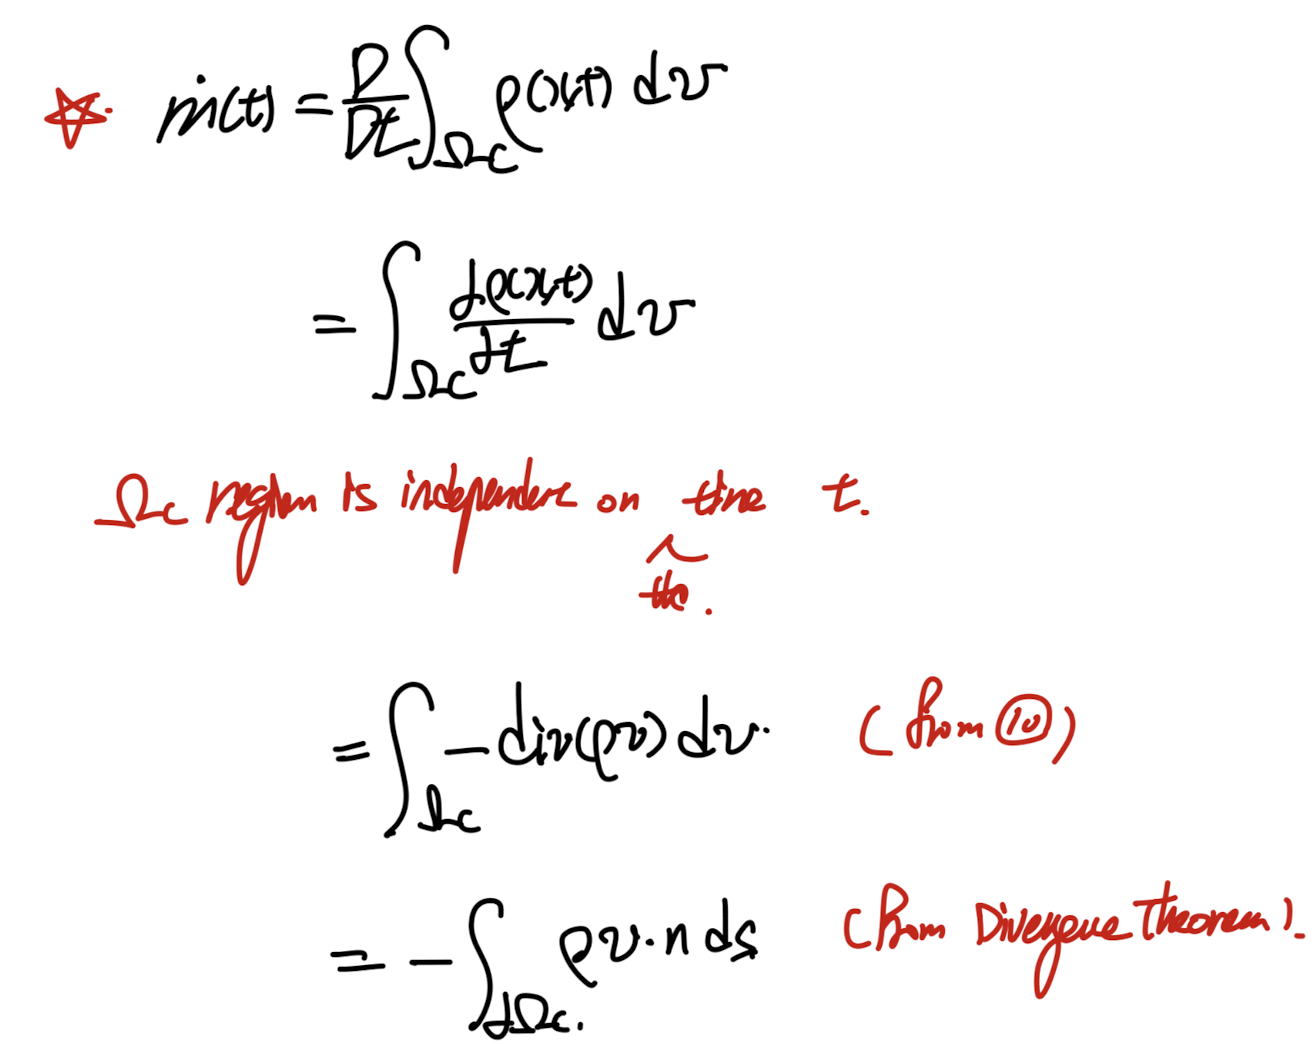 ☆. ṁ(t) = D/Dt ∫_Ωc ρ(x,t) dv
= ∫_Ωc ∂ρ(x,t)/∂t dv
Ωc region is independent on time t.
the.
= ∫_Ωc −div(ρv) dv. (from ⑩)
= − ∫_∂Ωc. ρv·n ds (from Divergence Theorem).